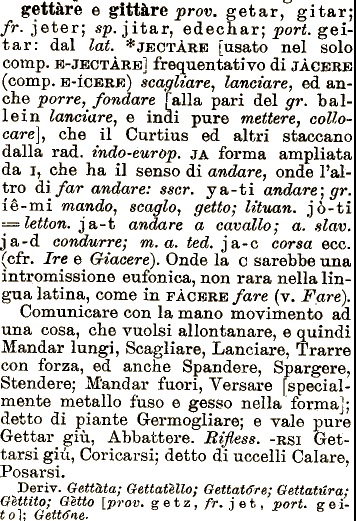 gettàre e gittàre prov. getar, gitar;
fr. jeter; sp. jitar, edechar; port. gei-
tar: dal lat. *JECTÀRE [usato nel solo
comp. E-JECTÀRE] frequentativo di JÀCERE
(comp. E-ÍCERE) scagliare, lanciare, ed an-
che porre, fondare [alla pari del gr. bal-
lein lanciare, e indi pure mettere, collo-
care], che il Curtius ed altri staccano
dalla rad. indo-europ. JA forma ampliata
da I, che ha il senso di andare, onde l'al-
tro di far andare: sscr. ya-ti andare; gr.
íê-mi mando, scaglo, getto; lituan. jò-ti
= letton. ja-t andare a cavallo; a. slav.
ja-d condurre; m. a. ted. ja-c corsa ecc.
(cfr. Ire e Giacere). Onde la C sarebbe una
intromissione eufonica, non rara nella lin-
gua latina, come in FÀCERE fare (v. Fare).
Comunicare con la mano movimento ad
una cosa, che vuolsi allontanare, e quindi
Mandar lungi, Scagliare, Lanciare, Trarre
con forza, ed anche Spandere, Spargere,
Stendere; Mandar fuori, Versare [special-
mente metallo fuso e gesso nella forma];
detto di piante Germogliare; e vale pure
Gettar giù, Abbattere. Rifless. -RSI Get-
tarsi giù, Coricarsi; detto di uccelli Calare,
Posarsi.
Deriv. Gettàta; Gettatèllo; Gettatóre; Gettatúra;
Gèttito; Gètto [prov. getz, fr. jet, port. gei-
to]; Gettóne.